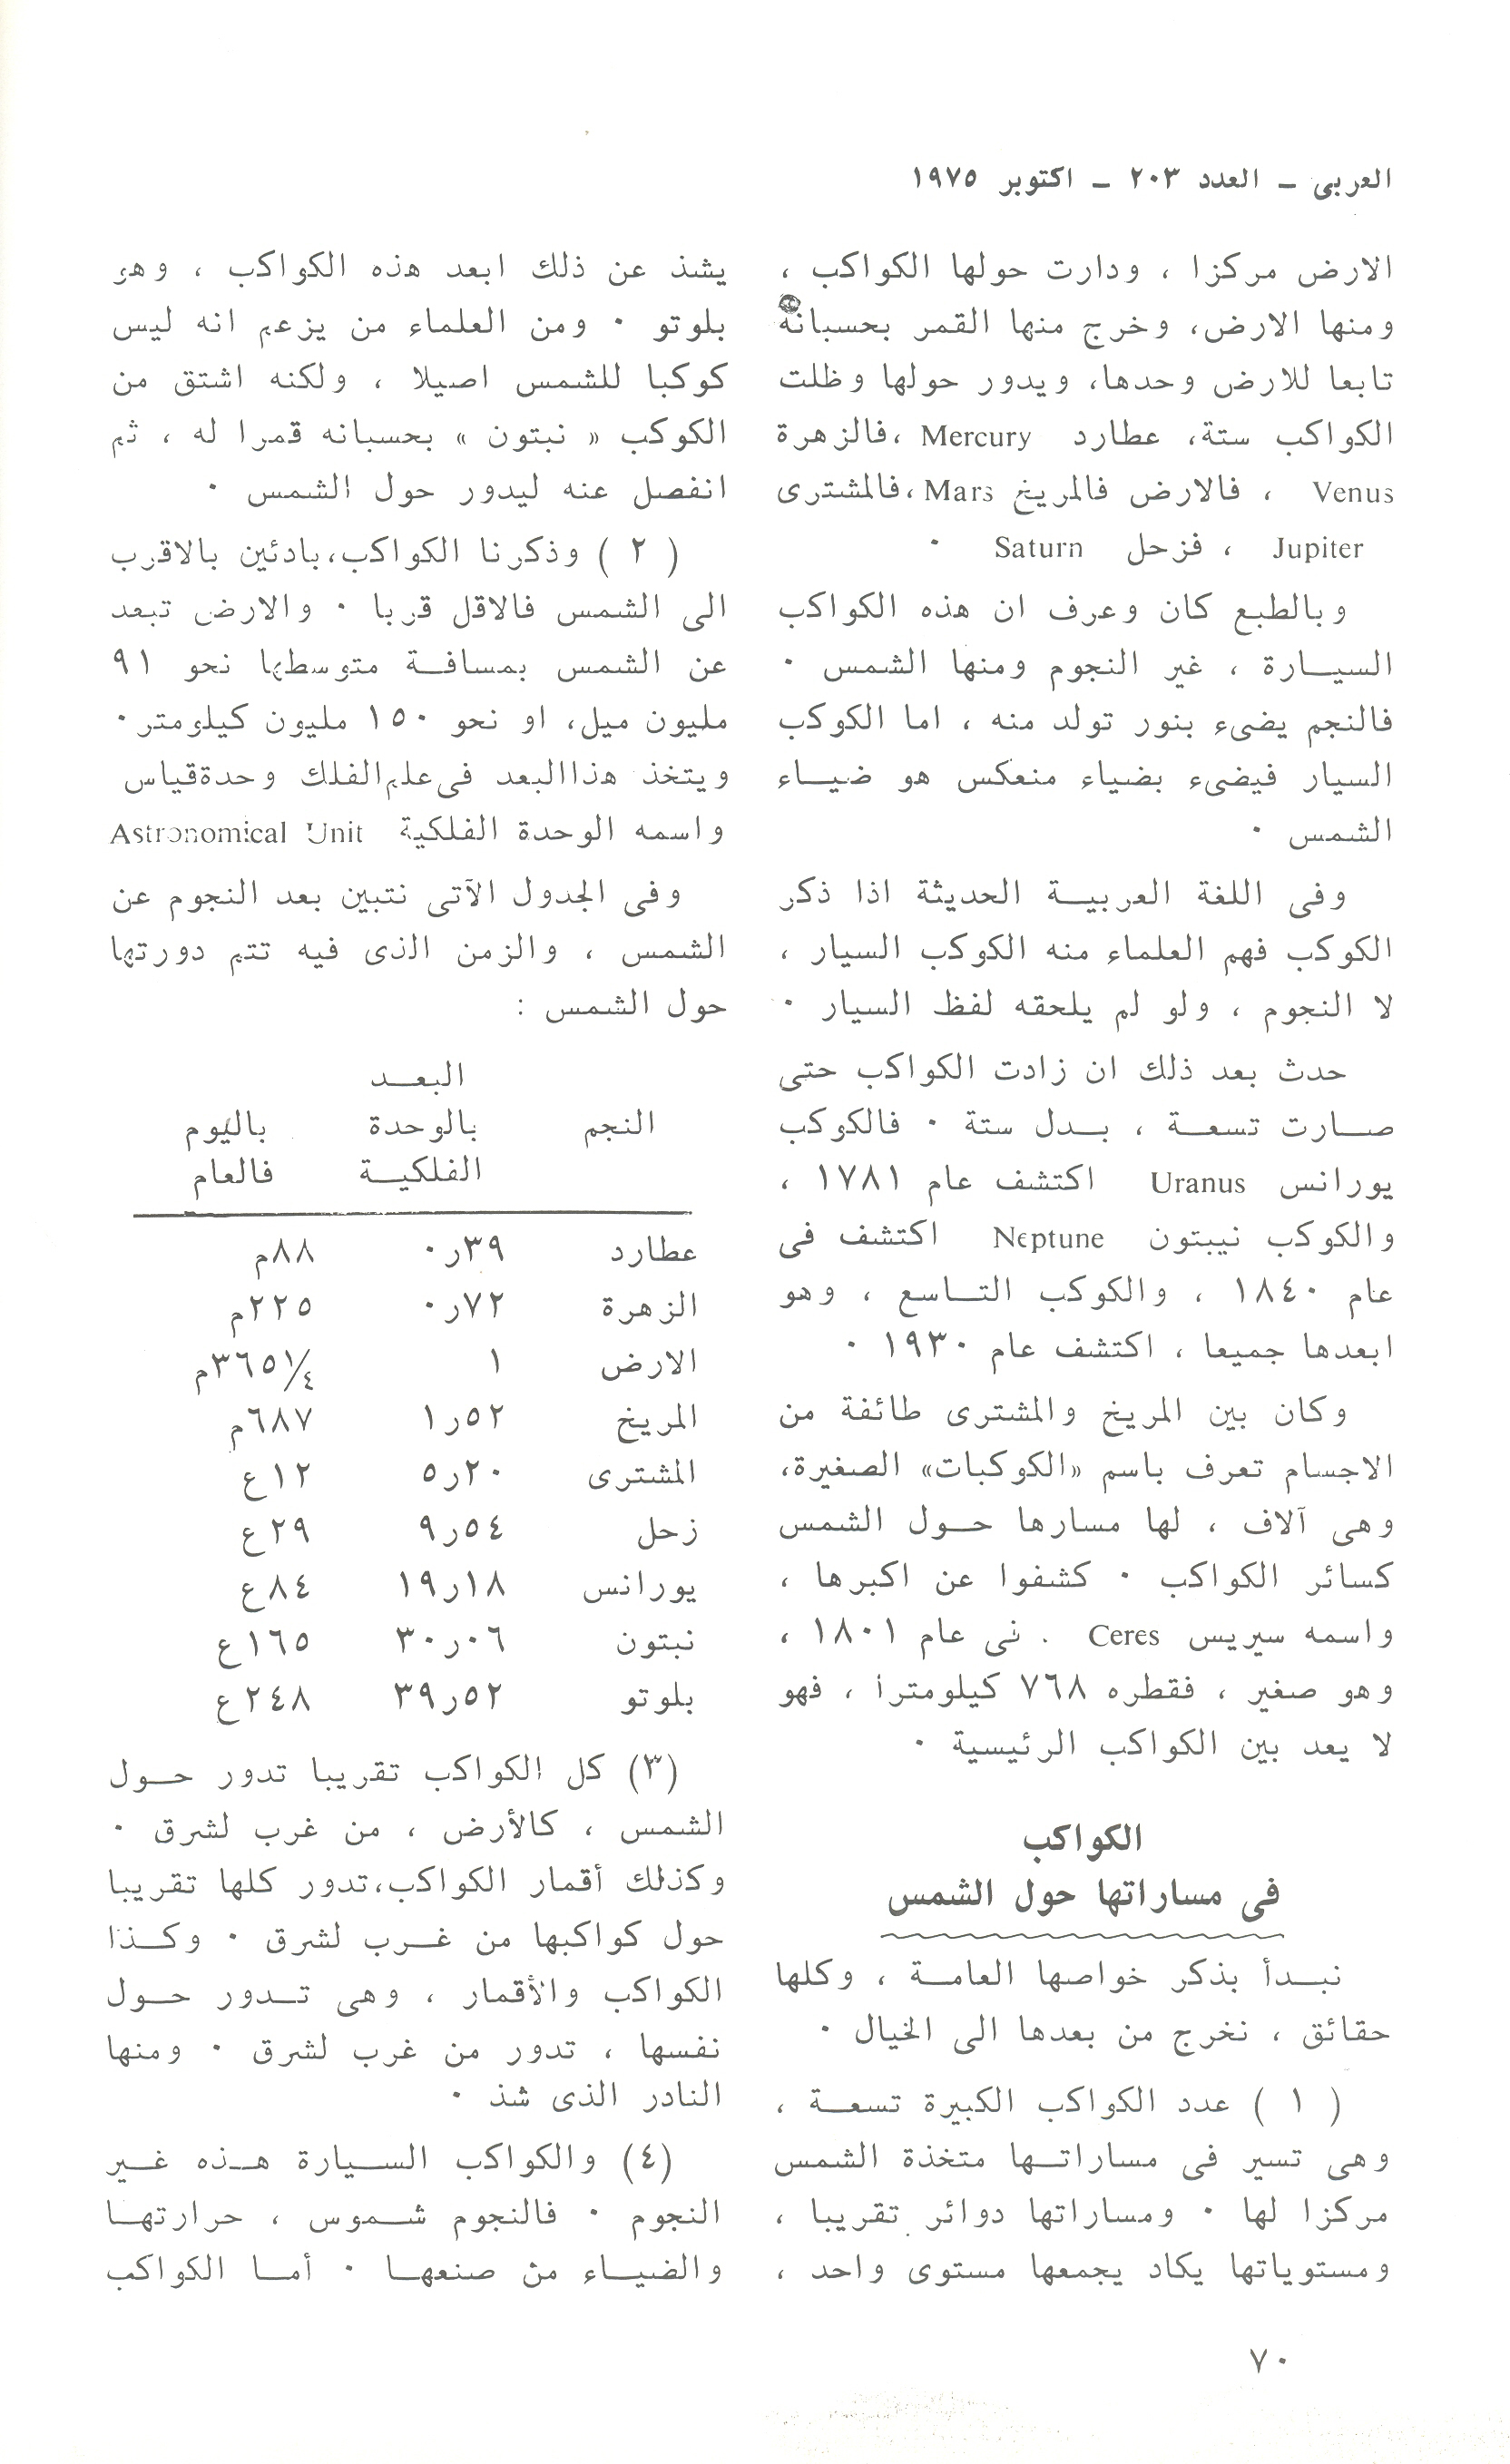 العربى – العدد ٢٠٣ – اكتوبر ١٩٧٥
الارض مركزا ، ودارت حولها الكواكب ،
ومنها الارض، وخرج منها القمر بحسبانه
تابعا للارض وحدها، ويدور حولها وظلت
الكواكب ستة، عطارد Mercury ،فالزهرة
Venus ، فالارض فالمريخ Mars ،فالمشترى
Jupiter ، فزحل Saturn ٠
وبالطبع كان وعرف ان هذه الكواكب
السيارة ، غير النجوم ومنها الشمس ٠
فالنجم يضىء بنور تولد منه ، اما الكوكب
السيار فيضىء بضياء منعكس هو ضياء
الشمس ٠
وفى اللغة العربية الحديثة اذا ذكر
الكوكب فهم العلماء منه الكوكب السيار ،
لا النجوم ، ولو لم يلحقه لفظ السيار ٠
حدث بعد ذلك ان زادت الكواكب حتى
صارت تسعة ، بدل ستة ٠ فالكوكب
يورانس Uranus اكتشف عام ١٧٨١ ،
والكوكب نيبتون Neptune اكتشف فى
عام ١٨٤٠ ، والكوكب التاسع ، وهو
ابعدها جميعا ، اكتشف عام ١٩٣٠ ٠
وكان بين المريخ والمشترى طائفة من
الاجسام تعرف باسم «الكوكبات» الصغيرة،
وهى آلاف ، لها مسارها حول الشمس
كسائر الكواكب ٠ كشفوا عن اكبرها ،
واسمه سيريس Ceres . فى عام ١٨٠١ ،
وهو صغير ، فقطره ٧٦٨ كيلومترا ، فهو
لا يعد بين الكواكب الرئيسية ٠
الكواكب
فى مساراتها حول الشمس
نبدأ بذكر خواصها العامة ، وكلها
حقائق ، نخرج من بعدها الى الخيال ٠
( ١ ) عدد الكواكب الكبيرة تسعة ،
وهى تسير فى مساراتها متخذة الشمس
مركزا لها ٠ ومساراتها دوائر تقريبا ،
ومستوياتها يكاد يجمعها مستوى واحد ،
يشذ عن ذلك ابعد هذه الكواكب ، وهو
بلوتو ٠ ومن العلماء من يزعم انه ليس
كوكبا للشمس اصيلا ، ولكنه اشتق من
الكوكب « نبتون » بحسبانه قمرا له ، ثم
انفصل عنه ليدور حول الشمس ٠
( ٢ ) وذكرنا الكواكب،بادئين بالاقرب
الى الشمس فالاقل قربا ٠ والارض تبعد
عن الشمس بمسافة متوسطها نحو ٩١
مليون ميل، او نحو ١٥٠ مليون كيلومتر٠
ويتخذ هذا البعد فى علم الفلك وحدة قياس
واسمه الوحدة الفلكية Astronomical Unit
وفى الجدول الآتى نتبين بعد النجوم عن
الشمس ، والزمن الذى فيه تتم دورتها
حول الشمس :
البعد
النجم بالوحدة باليوم
الفلكية فالعام
عطارد ٣٩ر٠ ٨٨م
الزهرة ٧٢ر٠ ٢٢٥م
الارض ١ ٣٦٥١/٤م
المريخ ٥٢ر١ ٦٨٧م
المشترى ٢٠ر٥ ١٢ع
زحل ٥٤ر٩ ٢٩ع
يورانس ١٨ر١٩ ٨٤ع
نبتون ٠٦ر٣٠ ١٦٥ع
بلوتو ٥٢ر٣٩ ٢٤٨ع
(٣) كل الكواكب تقريبا تدور حول
الشمس ، كالأرض ، من غرب لشرق ٠
وكذلك أقمار الكواكب،تدور كلها تقريبا
حول كواكبها من غرب لشرق ٠ وكذا
الكواكب والأقمار ، وهى تدور حول
نفسها ، تدور من غرب لشرق ٠ ومنها
النادر الذى شذ ٠
(٤) والكواكب السيارة هذه غير
النجوم ٠ فالنجوم شموس ، حرارتها
والضياء من صنعها ٠ أما الكواكب
٧٠